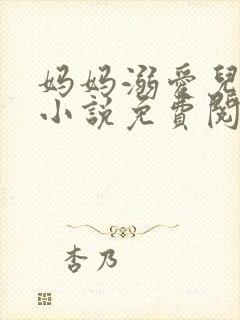 妈妈溺爱兒
小说免費閱
杏乃